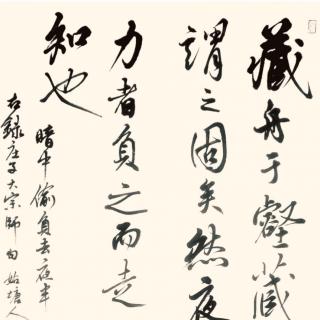 藏舟于壑藏
謂之固矣然夜
力者負之而走
知也
暗中偷負去夜半
右録庄子大宗師句 姑塘人